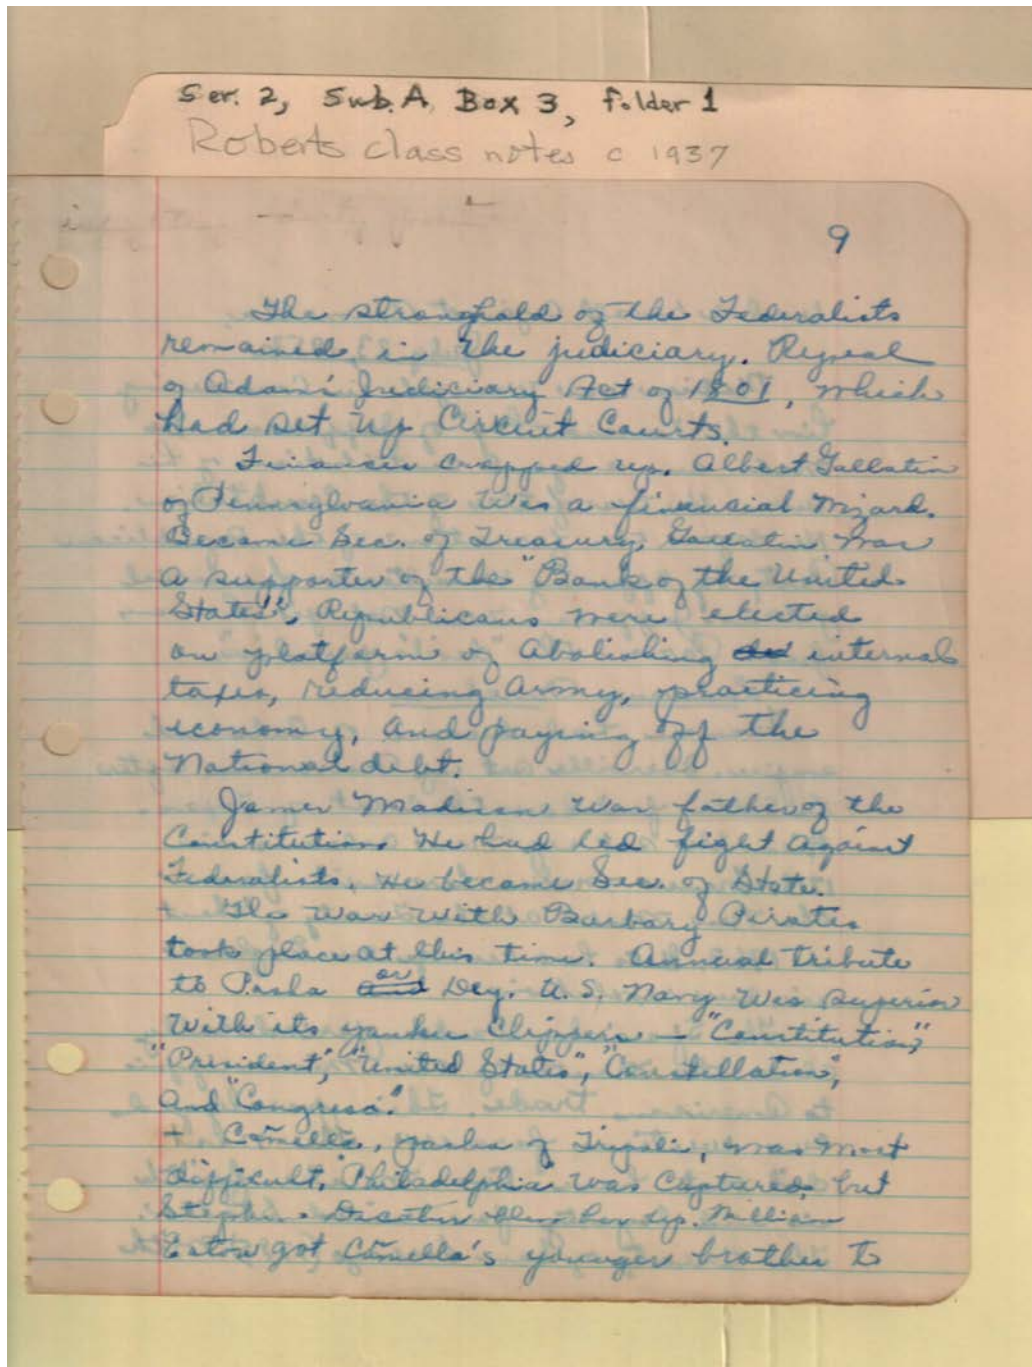 Ser. 2, Sub. A, Box 3, folder 1
Roberts class notes c 1937
9
The stronghold of the Federalists
remained in the judiciary. Repeal
of Adams' Judiciary Act of 1801, which
had set up Circuit Courts.
Finances cropped up. Albert Gallatin
of Pennsylvania was a financial wizard.
Became Sec. of Treasury, Gallatin was
a supporter of the "Bank of the United
States". Republicans were elected
on platform of abolishing internal
taxes, reducing army, practicing
economy, and paying off the
National debt.
James Madison was father of the
Constitution. He had led fight against
Federalists. He became Sec. of State.
+ The war with Barbary Pirates
took place at this time. Annual tribute
to Pasha and or Dey. U.S. Navy was superior
with its yankee Clippers – "Constitution,"
"President", "United States", "Constellation",
and "Congress."
+ Camella, pasha of Tripoli, was most
difficult. "Philadelphia" was captured, but
Stephen Decatur blew her up. William
Eaton got Camella's younger brother to